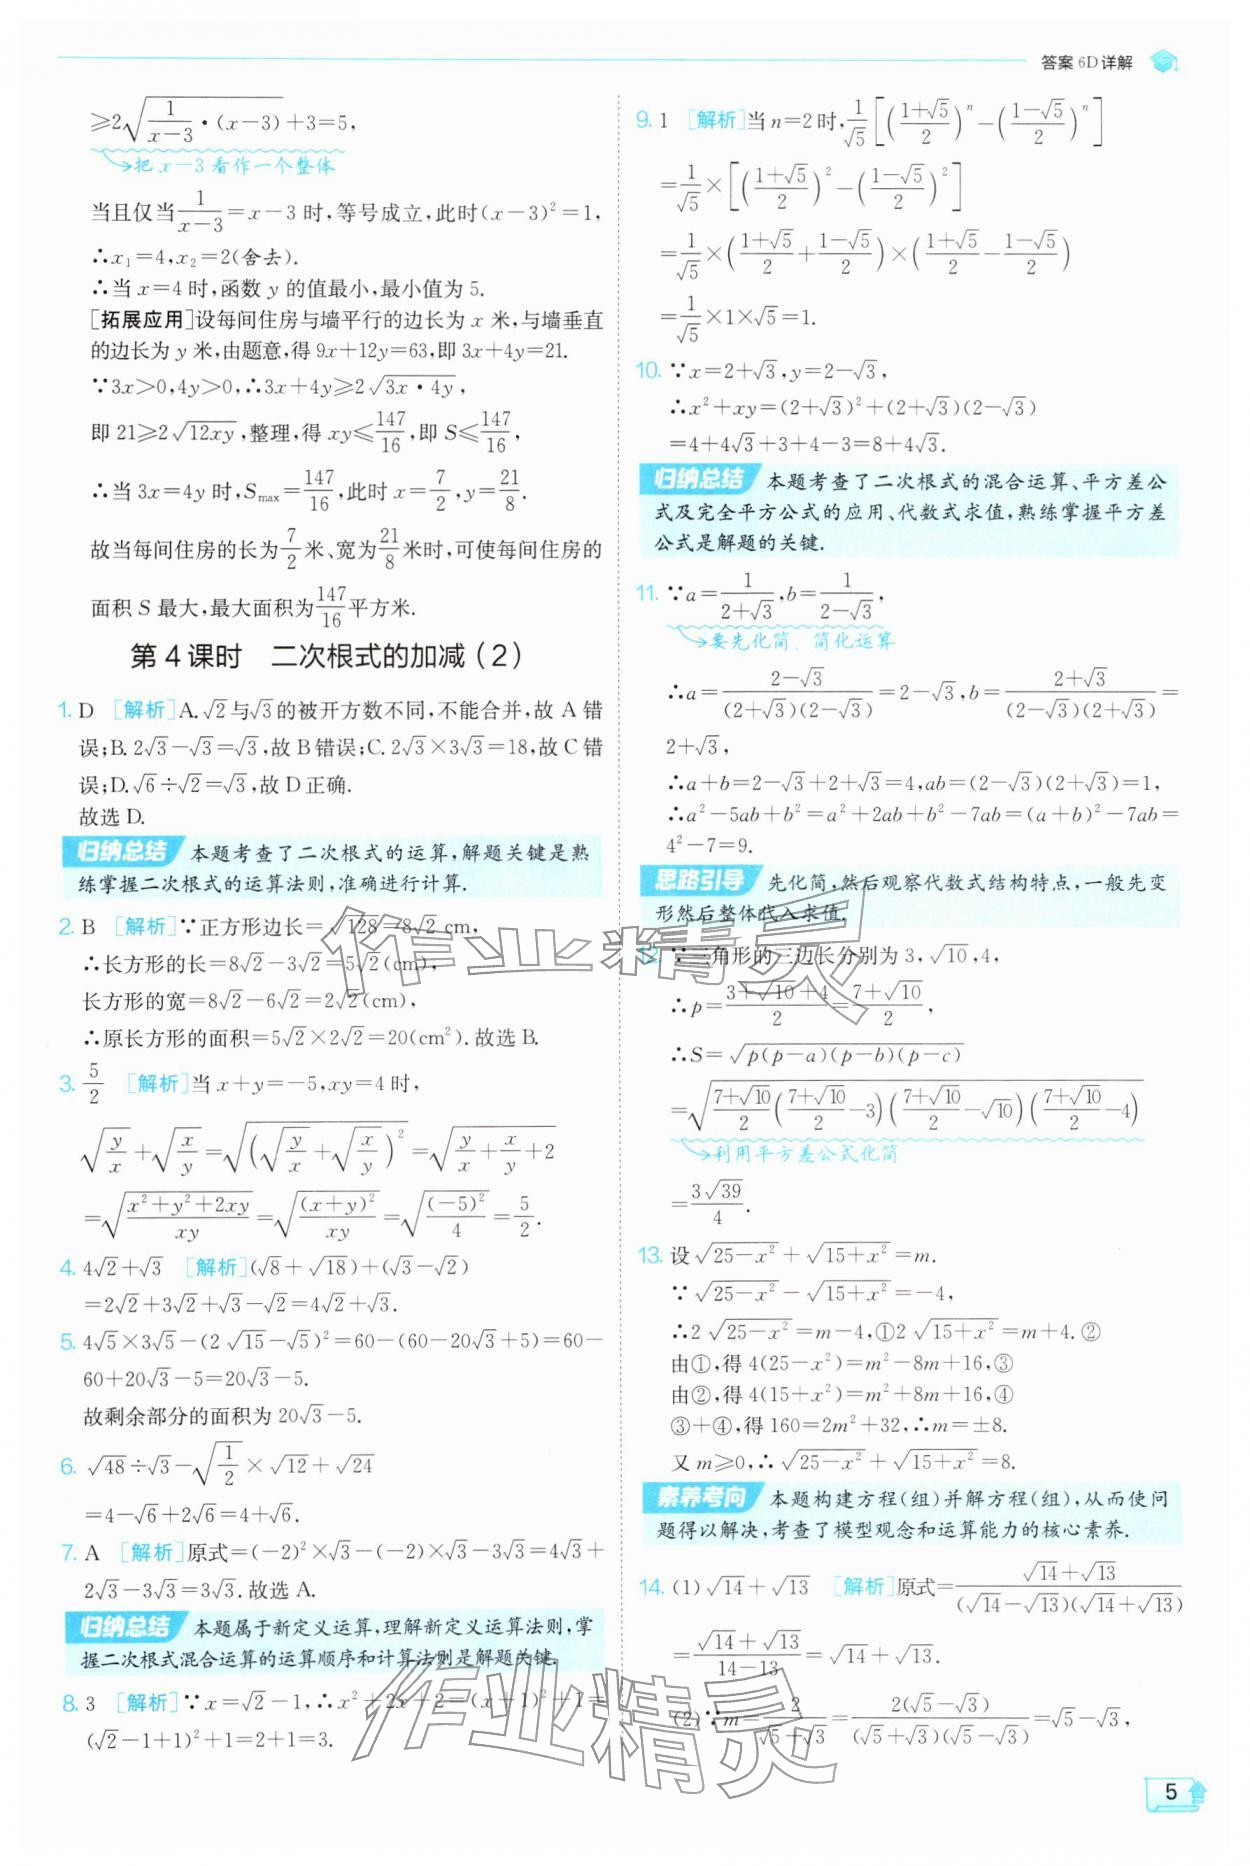 答案 6D 详解
≥2√(1/(x−3)·(x−3))+3=5,
→把 x−3 看作一个整体
当且仅当1/(x−3)=x−3 时,等号成立,此时(x−3)²=1,
∴x₁=4,x₂=2(舍去).
∴当 x=4 时,函数 y 的值最小,最小值为 5.
[拓展应用]设每间住房与墙平行的边长为 x 米,与墙垂直
的边长为 y 米,由题意,得 9x+12y=63,即 3x+4y=21.
∵3x>0,4y>0,∴3x+4y≥2√(3x·4y),
即 21≥2√(12xy),整理,得 xy≤147/16,即 S≤147/16,
∴当 3x=4y 时,Smax=147/16,此时 x=7/2,y=21/8.
故当每间住房的长为7/2米、宽为21/8米时,可使每间住房的
面积 S 最大,最大面积为147/16平方米.
第 4 课时 二次根式的加减(2)
1. D [解析]A.√2与√3的被开方数不同,不能合并,故 A 错
误;B. 2√3−√3=√3,故 B 错误;C. 2√3×3√3=18,故 C 错
误;D.√6÷√2=√3,故 D 正确.
故选 D.
归纳总结 本题考查了二次根式的运算,解题关键是熟
练掌握二次根式的运算法则,准确进行计算.
2. B [解析]∵正方形边长=√128=8√2 cm,
∴长方形的长=8√2−3√2=5√2(cm),
长方形的宽=8√2−6√2=2√2(cm),
∴原长方形的面积=5√2×2√2=20(cm²).故选 B.
3. 5/2 [解析]当 x+y=−5,xy=4 时,
√(y/x)+√(x/y)=√((√(y/x)+√(x/y))²)=√(y/x+x/y+2)
=√((x²+y²+2xy)/xy)=√((x+y)²/xy)=√((−5)²/4)=5/2.
4. 4√2+√3 [解析](√8+√18)+(√3−√2)
=2√2+3√2+√3−√2=4√2+√3.
5. 4√5×3√5−(2√15−√5)²=60−(60−20√3+5)=60−
60+20√3−5=20√3−5.
故剩余部分的面积为 20√3−5.
6. √48÷√3−√(1/2)×√12+√24
=4−√6+2√6=4+√6.
7. A [解析]原式=(−2)²×√3−(−2)×√3−3√3=4√3+
2√3−3√3=3√3.故选 A.
归纳总结 本题属于新定义运算,理解新定义运算法则,掌
握二次根式混合运算的运算顺序和计算法则是解题关键.
8. 3 [解析]∵x=√2−1,∴x²+2x+2=(x+1)²+1=
(√2−1+1)²+1=2+1=3.
9. 1 [解析]当 n=2 时,1/√5[((1+√5)/2)ⁿ−((1−√5)/2)ⁿ]
=1/√5×[((1+√5)/2)²−((1−√5)/2)²]
=1/√5×((1+√5)/2+(1−√5)/2)×((1+√5)/2−(1−√5)/2)
=1/√5×1×√5=1.
10. ∵x=2+√3,y=2−√3,
∴x²+xy=(2+√3)²+(2+√3)(2−√3)
=4+4√3+3+4−3=8+4√3.
归纳总结 本题考查了二次根式的混合运算、平方差公
式及完全平方公式的应用、代数式求值,熟练掌握平方差
公式是解题的关键.
11. ∵a=1/(2+√3),b=1/(2−√3),
→要先化简 简化运算
∴a=(2−√3)/((2+√3)(2−√3))=2−√3,b=(2+√3)/((2−√3)(2+√3))=
2+√3,
∴a+b=2−√3+2+√3=4,ab=(2−√3)(2+√3)=1,
∴a²−5ab+b²=a²+2ab+b²−7ab=(a+b)²−7ab=
4²−7=9.
思路引导 先化简,然后观察代数式结构特点,一般先变
形然后整体代入求值.
12. ∵三角形的三边长分别为 3,√10,4,
∴p=(3+√10+4)/2=(7+√10)/2,
∴S=√(p(p−a)(p−b)(p−c))
=√((7+√10)/2((7+√10)/2−3)((7+√10)/2−√10)((7+√10)/2−4))
→利用平方差公式化简
=3√39/4.
13. 设√(25−x²)+√(15+x²)=m.
∵√(25−x²)−√(15+x²)=−4,
∴2√(25−x²)=m−4,①2√(15+x²)=m+4.②
由①,得 4(25−x²)=m²−8m+16,③
由②,得 4(15+x²)=m²+8m+16,④
③+④,得 160=2m²+32,∴m=±8.
又 m≥0,∴√(25−x²)+√(15+x²)=8.
素养考向 本题构建方程(组)并解方程(组),从而使问
题得以解决,考查了模型观念和运算能力的核心素养.
14. (1)√14+√13 [解析]原式=(√14+√13)/((√14−√13)(√14+√13))
=(√14+√13)/(14−13)=√14+√13.
(2)∵m=2/(√5+√3)=2(√5−√3)/((√5+√3)(√5−√3))=√5−√3,
5
作业精灵
作业精灵